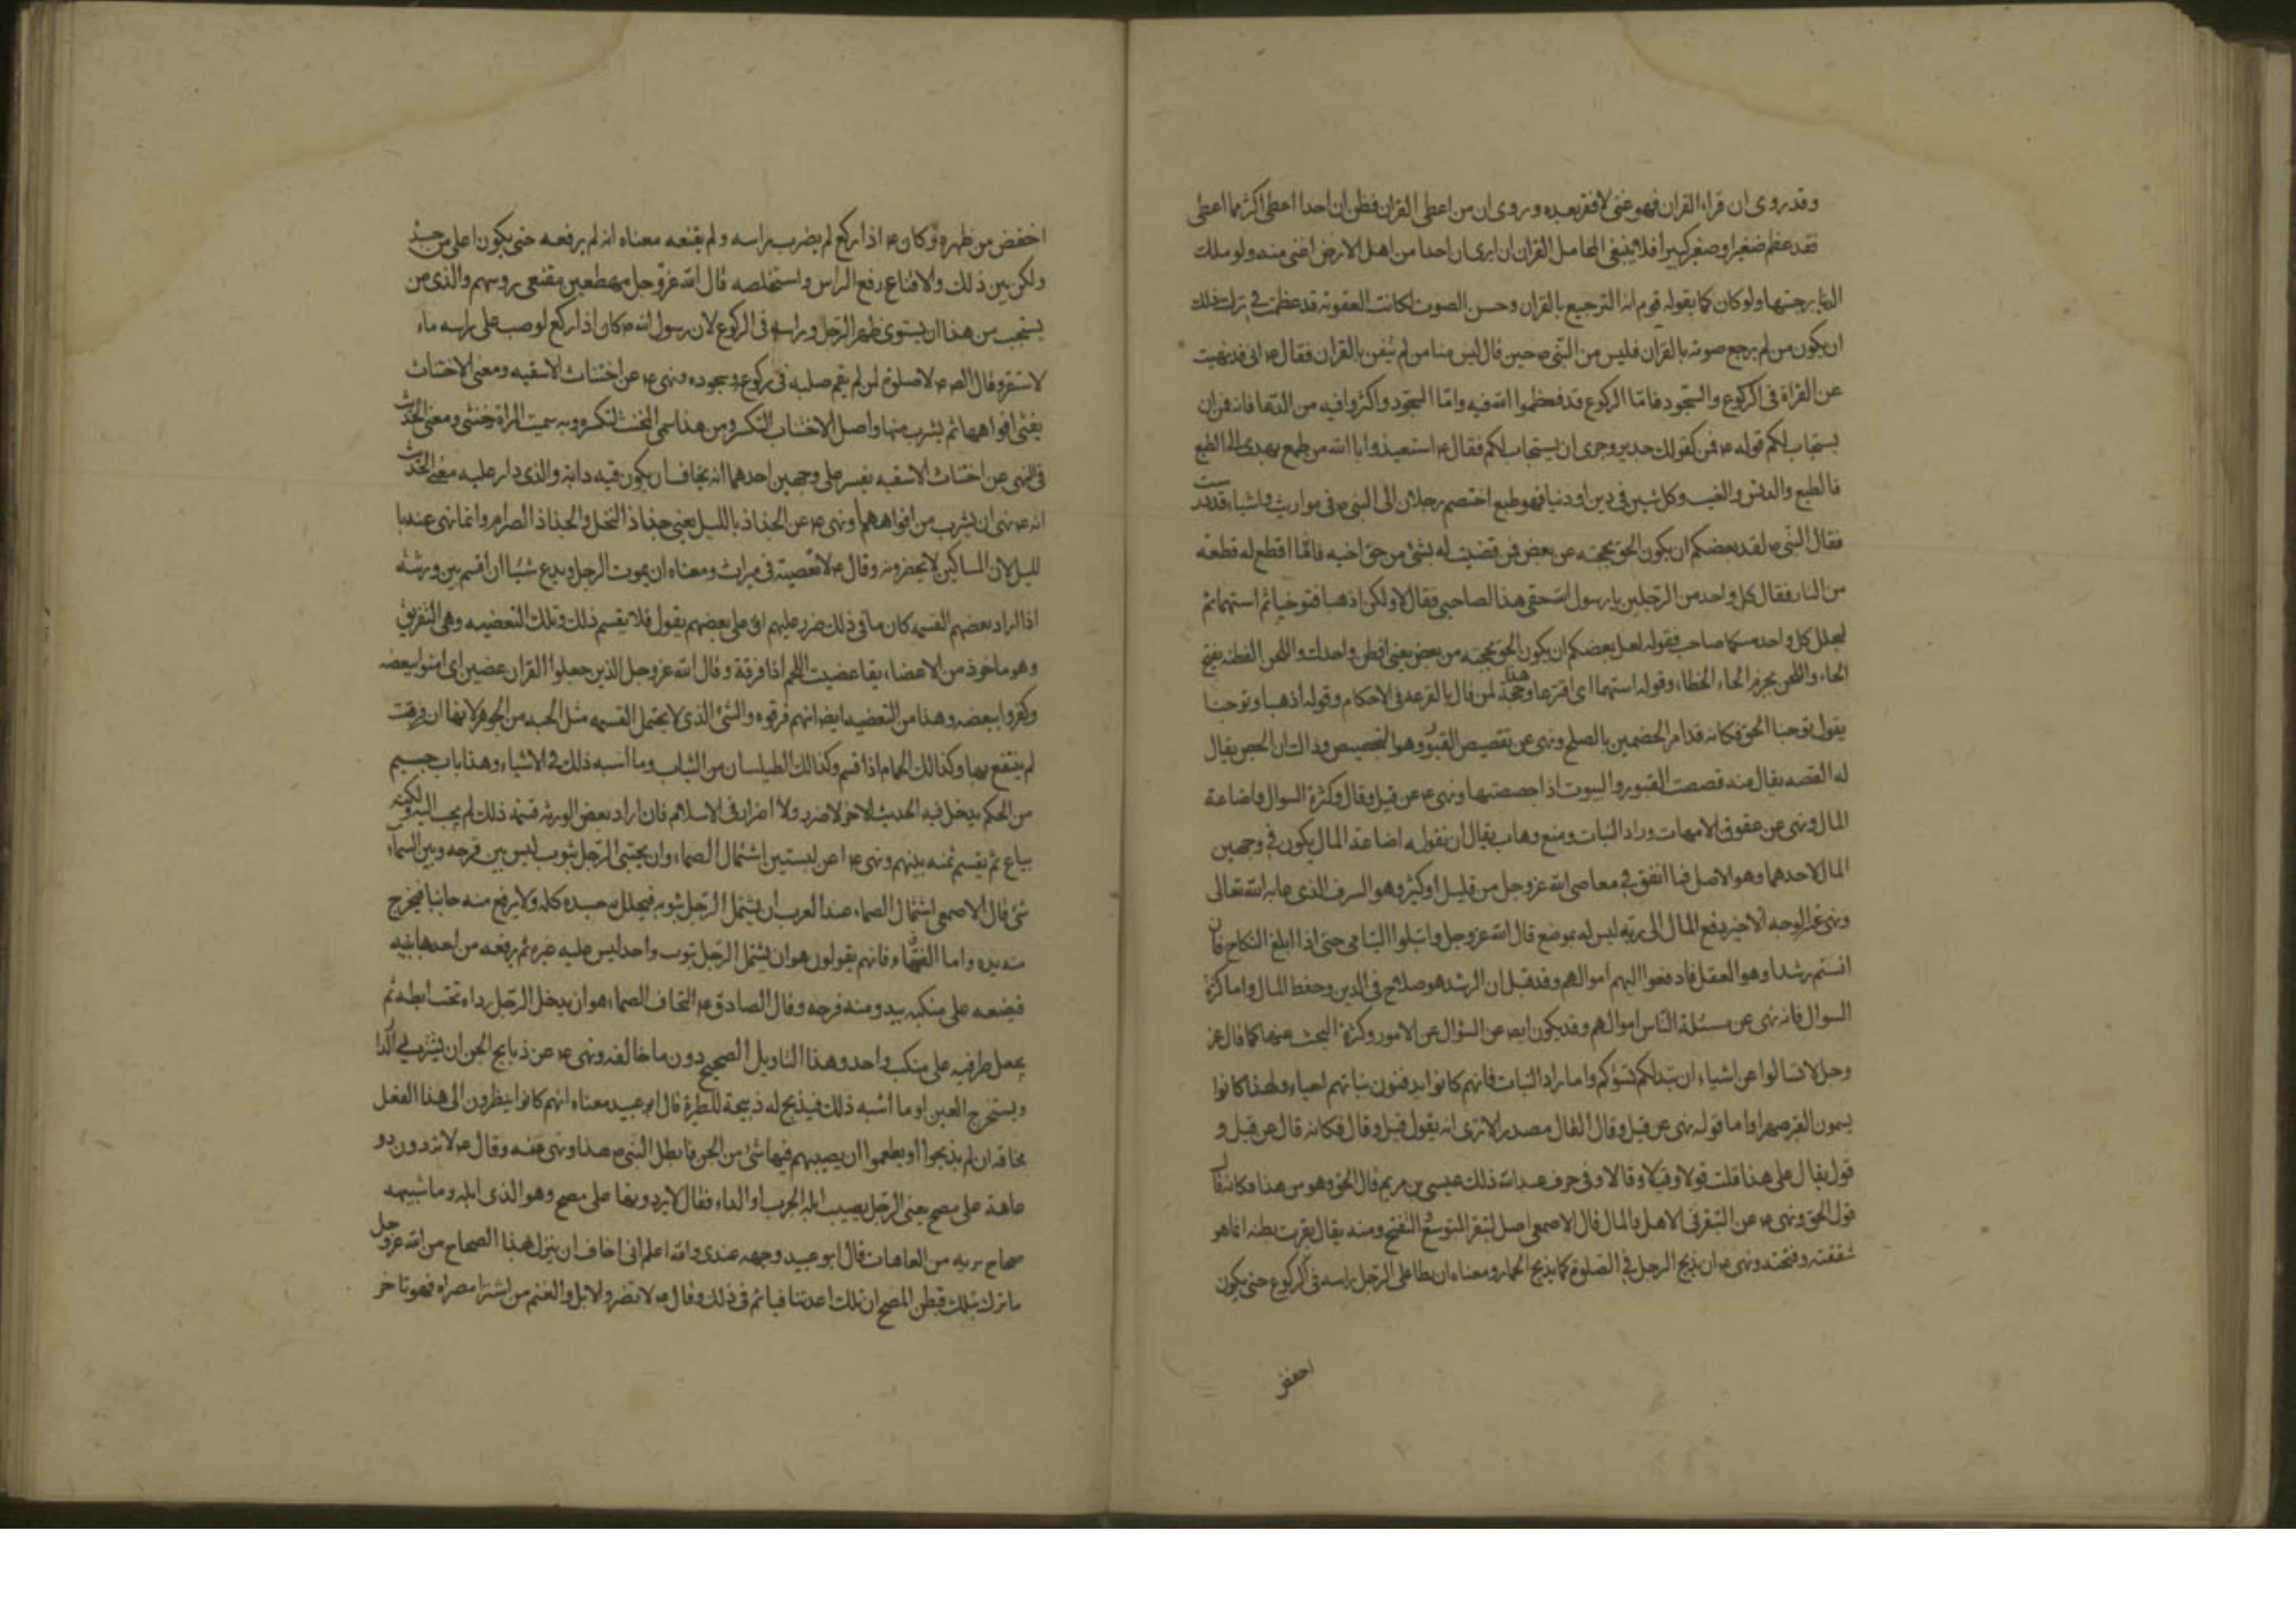 وقد روى ان من قراء القران فهو غنى لا فقر بعده وروى ان من اعطى القران فظن ان احدا اعطى اكثر مما اعطى
فقد عظم صغيرا وصغر كبيرا فلا ينبغى لحامل القران ان يرى ان احدا من اهل الارض اغنى منه ولو ملك
الدنيا برحبها ولو كان كما يقوله قوم انه الترجيع بالقران وحسن الصوت لكانت العقوبة قد عظمت في ترك ذلك
ان يكون من لم يرجع صوته بالقران فليس من النبى ص حين قال ليس منا من لم يتغن بالقران فقال ص انى قد نهيت
عن القراة فى الركوع والسجود فامّا الركوع فعظموا الله فيه وامّا السجود واكثروا فيه من الدعا فانه قمن ان
يستجاب لكم قوله ص قمن كقولك جدير وحرى ان يستجاب لكم فقال ص استعيذوا بالله من طمع يهدى الى الطبع
فالطبع والدنس والعيب وكل شين فى دين او دنيا فهو طبع اختصم رجلان الى النبى ص فى مواريث واشياء قد درست
فقال النبى ص لعل بعضكم ان يكون الحن بحجته من بعض فمن قضيت له بشئ من حق اخيه فانّما اقطع له قطعة
من النار فقال كل واحد من الرجلين يا رسول الله حقى هذا لصاحبى فقال لا ولكن اذهبا فتوخيا ثم استهما ثم
ليحلل كل واحد منكما صاحبه فقوله لعل بعضكم ان يكون الحن بحجته من بعض يعنى افطن واجدل واللحن الفطنة بفتح
الحاء واللحن بجزم الحاء الخطاء وقوله استهما اى اقترعا وهذا حجة لمن قال بالقرعه فى الاحكام وقوله اذهبا وتوخيا
يقول توخيا الحق فكانه قد امر الخصمين بالصلح ونهى عن تقصيص القبور وهو التجصيص وذاك ان الجص يقال
له القصه يقال منه قصصت القبور والبيوت اذا جصصتها ونهى ص عن قيل وقال وكثرة السوال واضاعة
المال ونهى عن عقوق الامهات وواد البنات ومنع وهات يقال ان قوله اضاعة المال يكون في وجهين
اما احدهما وهو الاصل فيا انفق في معاصى الله عز وجل من قليل او كثير وهو السرف الذى عابه الله تعالى
ونهى عنه والوجه الاخير دفع المال الى ربه ليس له بموضع قال الله عز وجل وابتلوا اليتامى حتى اذا بلغ النكاح فان
انستم رشدا وهو العقل فادفعوا اليهم اموالهم وقد قيل ان الرشد هو صلاح فى الدين وحفظ المال واما كثرة
السوال فانه نهى عن مسئلة الناس اموالهم وقد يكون ايضا عن السؤال عن الامور وكثرة البحث عنها كما قال عز
وجل لا تسالوا عن اشياء ان تبد لكم تسؤكم واما واد البنات فانهم كانوا يدفنون بناتهم احياء ولهذا كانوا
يسمون القبر صهرا واما قوله نهى عن قيل وقال القال مصدر الا ترى انه يقول قيل وقال فكانه قال عن قيل و
قول يقال على هذا قلت قولا وقيلا وقالا وفى حرف عبد الله ذلك عيسى بن مريم قال الحق وهو من هذا فكانه قال
قول الحق ونهى ص عن التبقر فى الاهل والمال قال الاصمعى اصل التبقر التوسع والتفتح ومنه يقال بقرت بطنه انما هو
شققته وفتحته ونهى ص ان يذبح الرجل فى الصلوة كما يذبح الحمار ومعناه ان يطاطى الرجل راسه فى الركوع حتى يكون
اخفض
اخفض من ظهره وكان ص اذا ركع لم يضرب راسه ولم يقنعه معناه انه لم يرفعه حتى يكون اعلى من جسده
ولكن بين ذلك والاقناع رفع الراس واستخلصه قال الله عز وجل مهطعين مقنعى روسهم والذى من
يستحب من هذا ان يستوى ظهر الرجل وراسه فى الركوع لان رسول الله ص كان اذا ركع لو صب على راسه ماء
لاستقر وقال الص ص لا صلوة لمن لم يقم صلبه فى ركوعه وسجوده ونهى ص عن اختناث الاسقيه ومعنى الاختناث
يثنى افواهها ثم يشرب منها واصل الاختناث التكسر ومن هذا سمى المخنث لتكسره وبه سميت المراة خنثى ومعنى الحديث
فى النهى عن اختناث الاسقيه يفسر على وجهين احدهما انه يخاف ان يكون فيه دابة والذى دار عليه معنى الحديث
انه ص نهى ان يشرب من افواهها ونهى ص عن الجذاذ بالليل يعنى جذاذ النخل والجذاذ الصرام وانما نهى عنه با
لليل لان المساكين لا يحضرونه وقال ص لا تعضية فى ميراث ومعناه ان يموت الرجل ويدع شيئا ان اقسم بين ورثته
اذا اراد بعضهم القسمه كان ما فى ذلك ضرر عليهم او على بعضهم يقول فلا يقسم ذلك وتلك التعضيه وهى التفريق
وهو ماخوذ من الاعضاء يقا عضيت اللحم اذا فرقته وقال الله عز وجل الذين جعلوا القران عضين اى امنوا ببعضه
وكفروا ببعضه وهذا من التعضيه ايضا انهم فرقوه والشئ الذى لا يحتمل القسمه مثل الحبه من الجوهر لانها ان فرقت
لم ينتفع بها وكذالك الحمام اذا قسم وكذالك الطيلسان من الثياب وما اشبه ذلك فى الاشياء وهذا باب جسيم
من الحكم يدخل فيه الحديث الاخر لا ضرر ولا اضرار فى الاسلام فان اراد بعض الورثة قسمة ذلك لم يجب اليه ولكنه
يباع ثم يقسم ثمنه بينهم ونهى ص عن لبستين اشتمال الصماء وان يحتبى الرجل بثوب ليس بين فرجه وبين السماء
شئ قال الاصمعى اشتمال الصماء عند العرب ان يشتمل الرجل بثوبه فيجلل به جسده كله ولا يرفع منه جانبا فيخرج
منه يده واما الفقهاء فانهم يقولون هو ان يشتمل الرجل بثوب واحد ليس عليه غيره ثم يرفعه من احد جانبيه
فيضعه على منكبه يبدو منه فرجه وقال الصادق ص التحاف الصماء هو ان يدخل الرجل رداءه تحت ابطه ثم
يجعل طرفيه على منكب واحد وهذا التاويل الصحيح دون ما خالفه ونهى ص عن ذبايح الجن ان يشترى الدا
ويستخرج العين او ما اشبه ذلك فيذبح له ذبيحة للطيرة قال ابو عبيد معناه انهم كانوا ينظرون الى هذا الفعل
مخافة ان لم يذبحوا او يطعموا ان يصيبهم فيها شئ من الجن فابطل النبى ص هذا ونهى عنه وقال ص لا توردون ذو
عاهة على مصح يعنى الرجل يصيب ابله الجرب او الداء فقال لا يوردنها على مصح وهو الذى ابله وماشيته
صحاح بريه من العاهات قال ابو عبيد وجهه عندى والله اعلم انى اخاف ان ينزل بهذا الصحاح من الله عز وجل
ما نزل بتلك فيظن المصح ان تلك اعدتها فياثم فى ذلك وقال ص لا تصروا الابل والغنم من اشترا مصراة فهو باخر